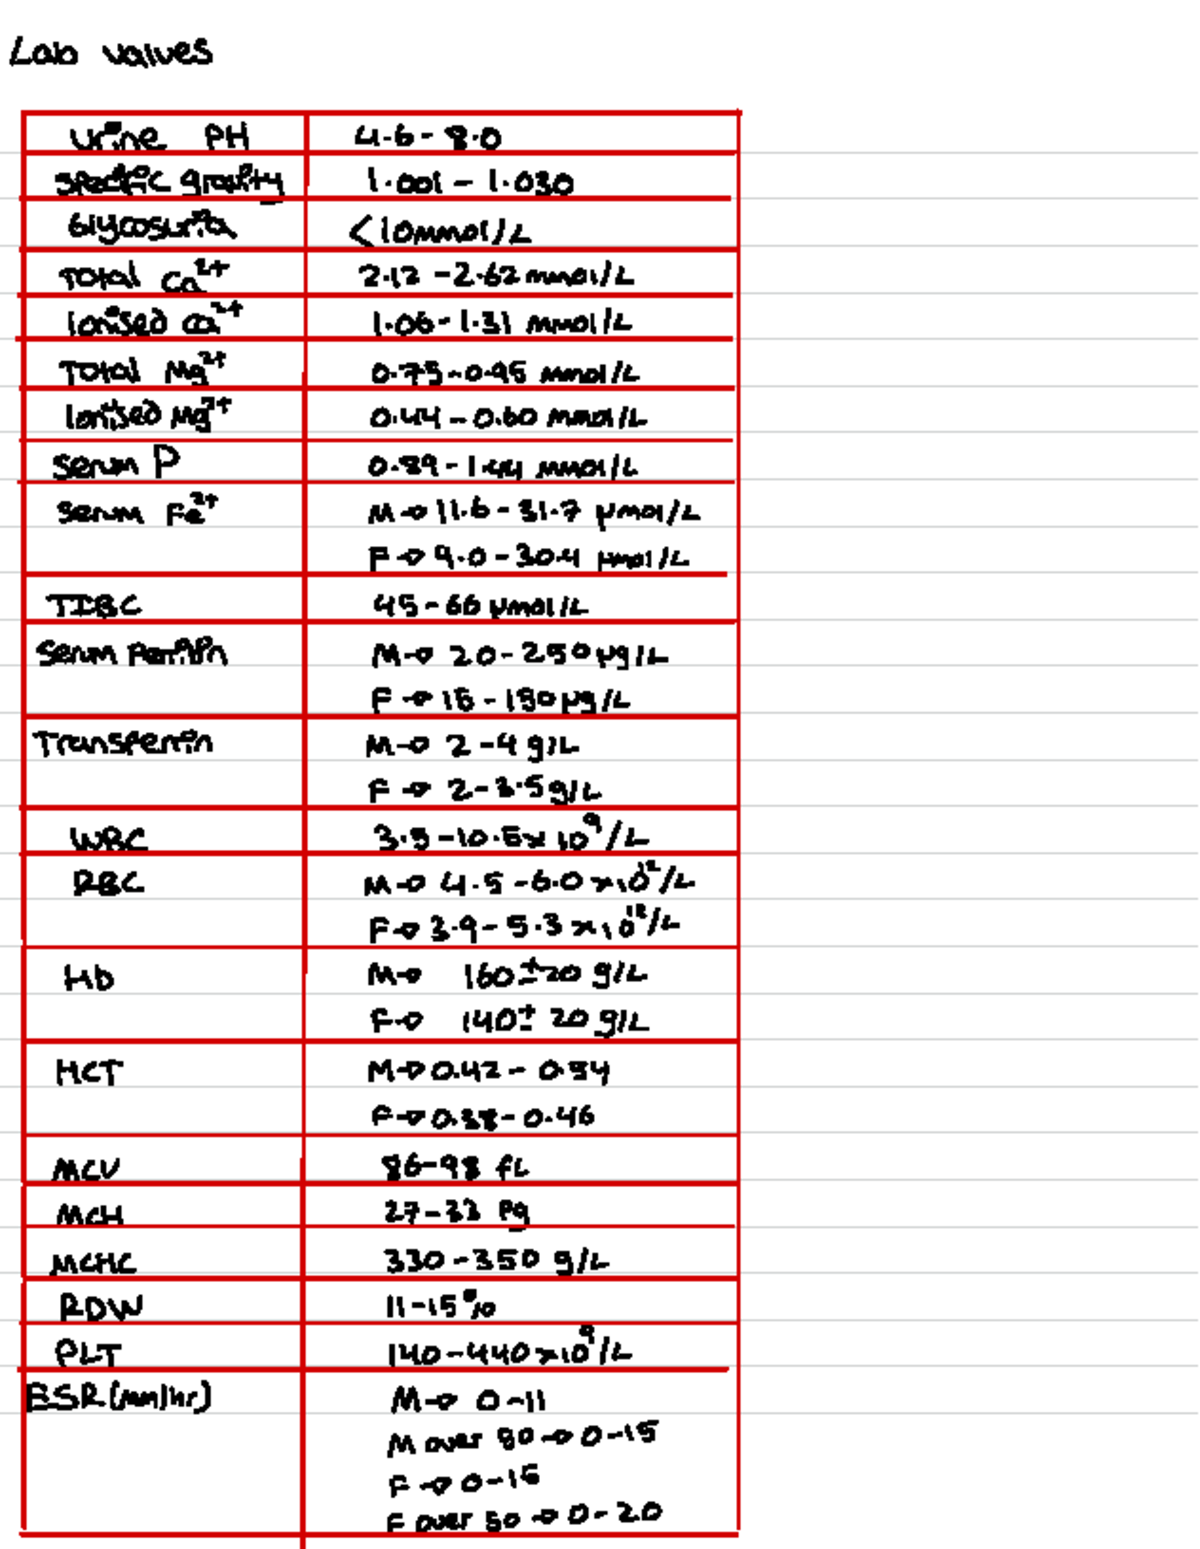 Lab values
Urine PH 4.6-8.0
Specific gravity 1.001-1.030
Glycosuria <10mmol/L
Total Ca²⁺ 2.12-2.62 mmol/L
Ionised Ca²⁺ 1.06-1.31 mmol/L
Total Mg²⁺ 0.75-0.95 mmol/L
Ionised Mg²⁺ 0.44-0.60 mmol/L
Serum P 0.89-1.44 mmol/L
Serum Fe²⁺ M→ 11.6-31.7 μmol/L
F→ 9.0-30.4 μmol/L
TIBC 45-66 μmol/L
Serum Ferritin M→ 20-250 μg/L
F→ 15-150 μg/L
Transferrin M→ 2-4 g/L
F→ 2-3.5 g/L
WBC 3.5-10.5x10⁹/L
RBC M→ 4.5-6.0x10¹²/L
F→ 3.9-5.3x10¹²/L
Hb M→ 160±20 g/L
F→ 140±20 g/L
HCT M→ 0.42-0.54
F→ 0.38-0.46
MCV 86-98 fL
MCH 27-33 Pg
MCHC 330-350 g/L
RDW 11-15%
PLT 140-440x10⁹/L
ESR (mm/hr) M→ 0-11
M over 50→ 0-15
F→ 0-15
F over 50→ 0-20